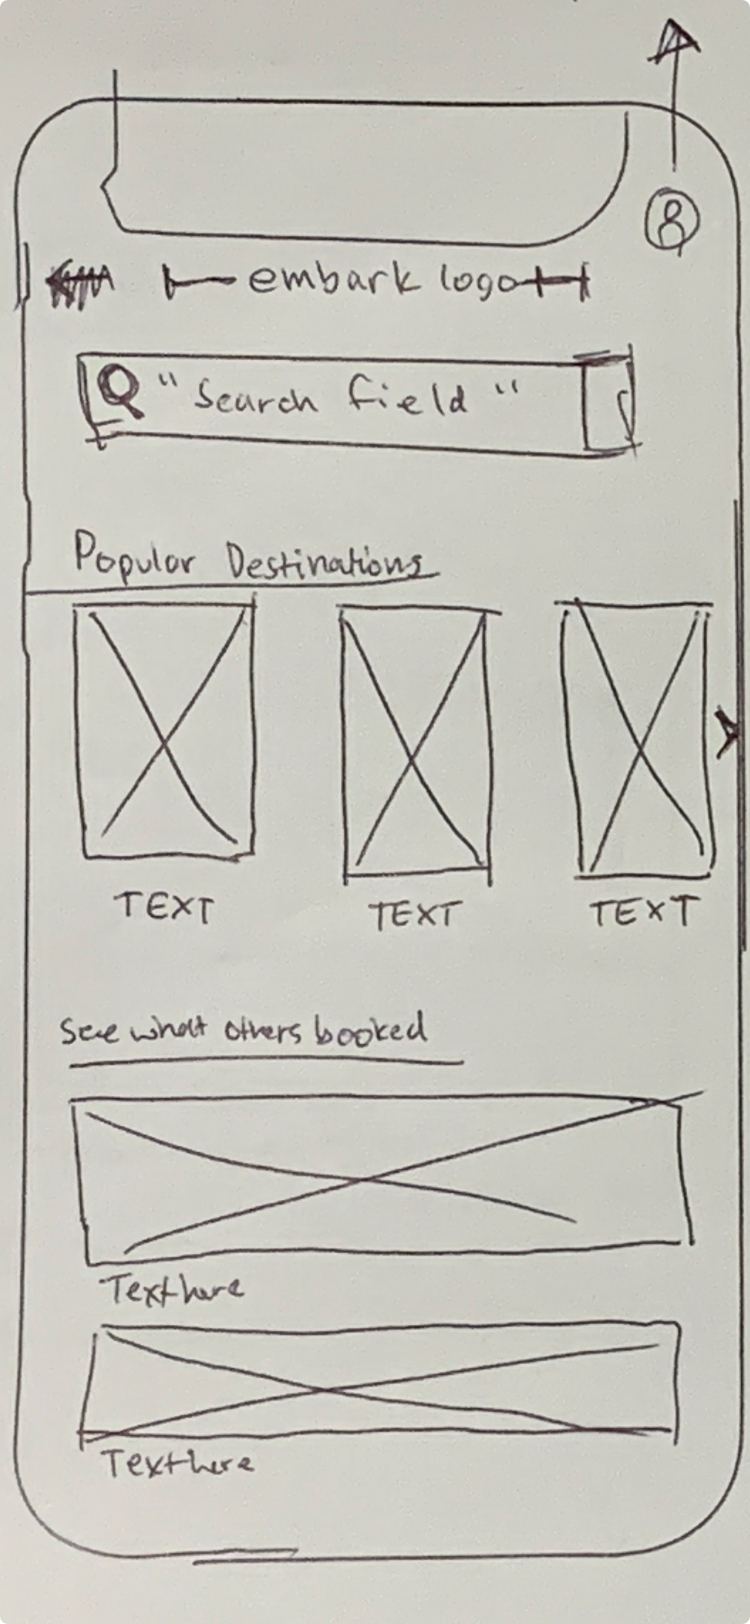 embark logo
"Search field"
Popular Destinations
TEXT TEXT TEXT
See what others booked
Text here
Text here